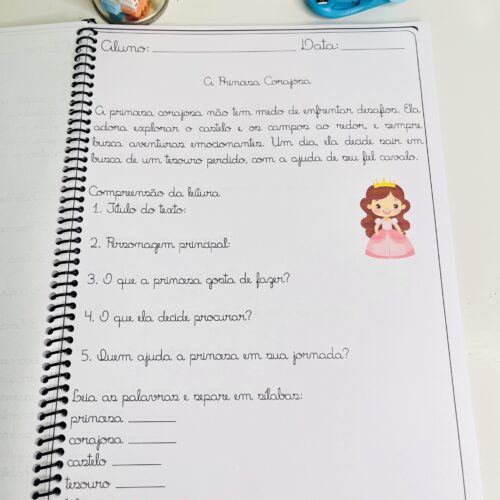 Aluno: ____________________ Data: __________
A Princesa Corajosa
A princesa corajosa não tem medo de enfrentar desafios. Ela
adora explorar o castelo e os campos ao redor, e sempre
busca aventuras emocionantes. Um dia, ela decide sair em
busca de um tesouro perdido, com a ajuda de seu fiel cavalo.
Compreensão da leitura
1. Título do texto:
2. Personagem principal:
3. O que a princesa gosta de fazer?
4. O que ela decide procurar?
5. Quem ajuda a princesa em sua jornada?
Leia as palavras e separe em sílabas:
princesa ______
corajosa ______
castelo ______
tesouro ______